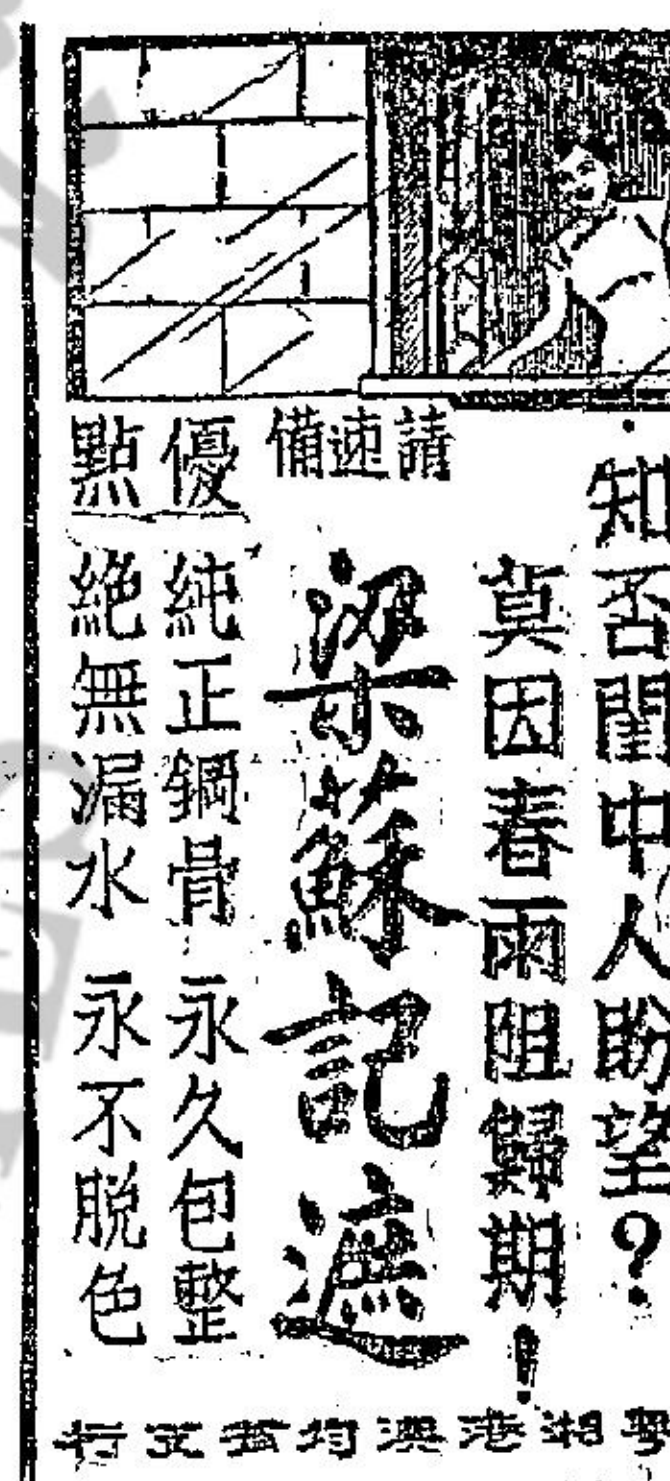 知否閨中人盼望？
莫因春雨阻歸期！
請速備
梁蘇記遮
優點
純正鋼骨 永久包整
絕無漏水 永不脫色
粵湘港澳均有支行